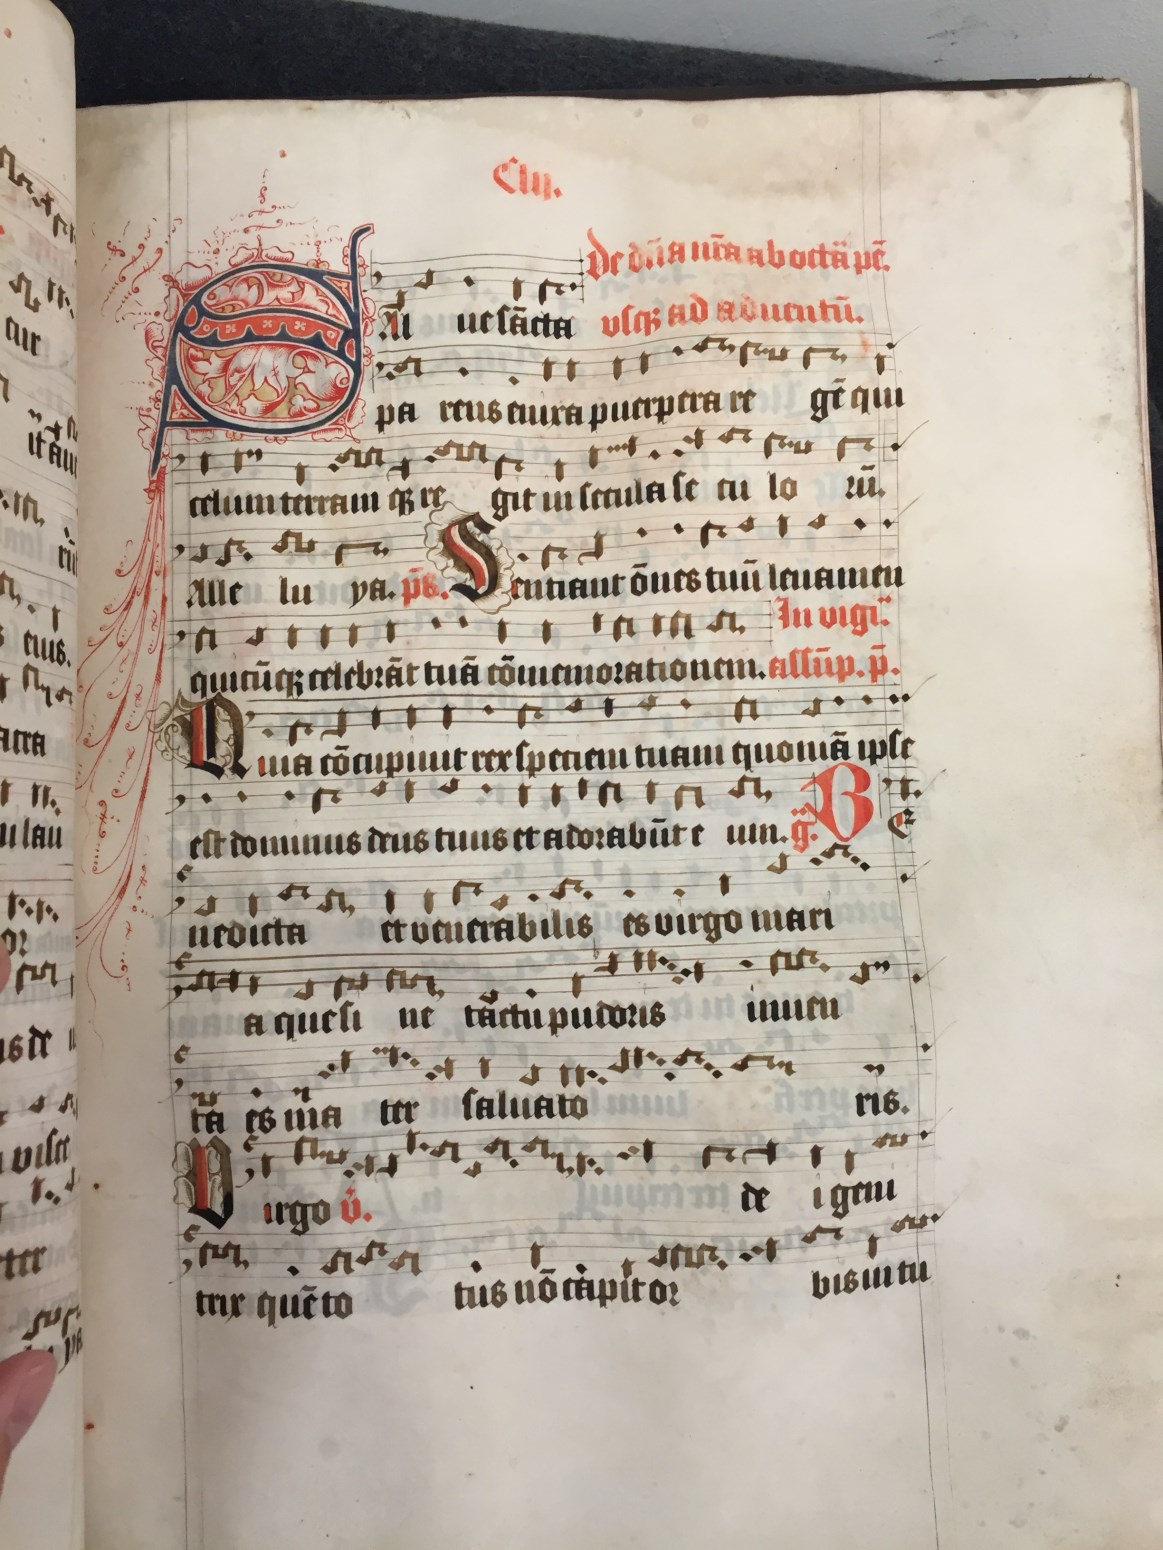 Ciii.
De dn̄a nr̄a ab octā pē.
SAl ue sācta
vsqꝫ ad aduentū.
pa rens enixa puerpera re gē qui
celum terram qꝫ re git in secula se cu lo rū.
Alle lu ya. p̄s. Sentiant ōnes tuū leuamen
In vigi.
quicūqꝫ celebrāt tuā cōmemorationem. assūp. p̄.
Quia cōcupiuit rex speciem tuam quoniā ipse
est dominus deus tuus et adorabūt e um. ḡ. BE
nedicta et venerabilis es virgo mari
a que si ne tactu pudoris inuen
ta es ma ter saluato ris.
Virgo v̄. de i geni
trix quē to tus nō capit or bis in tu